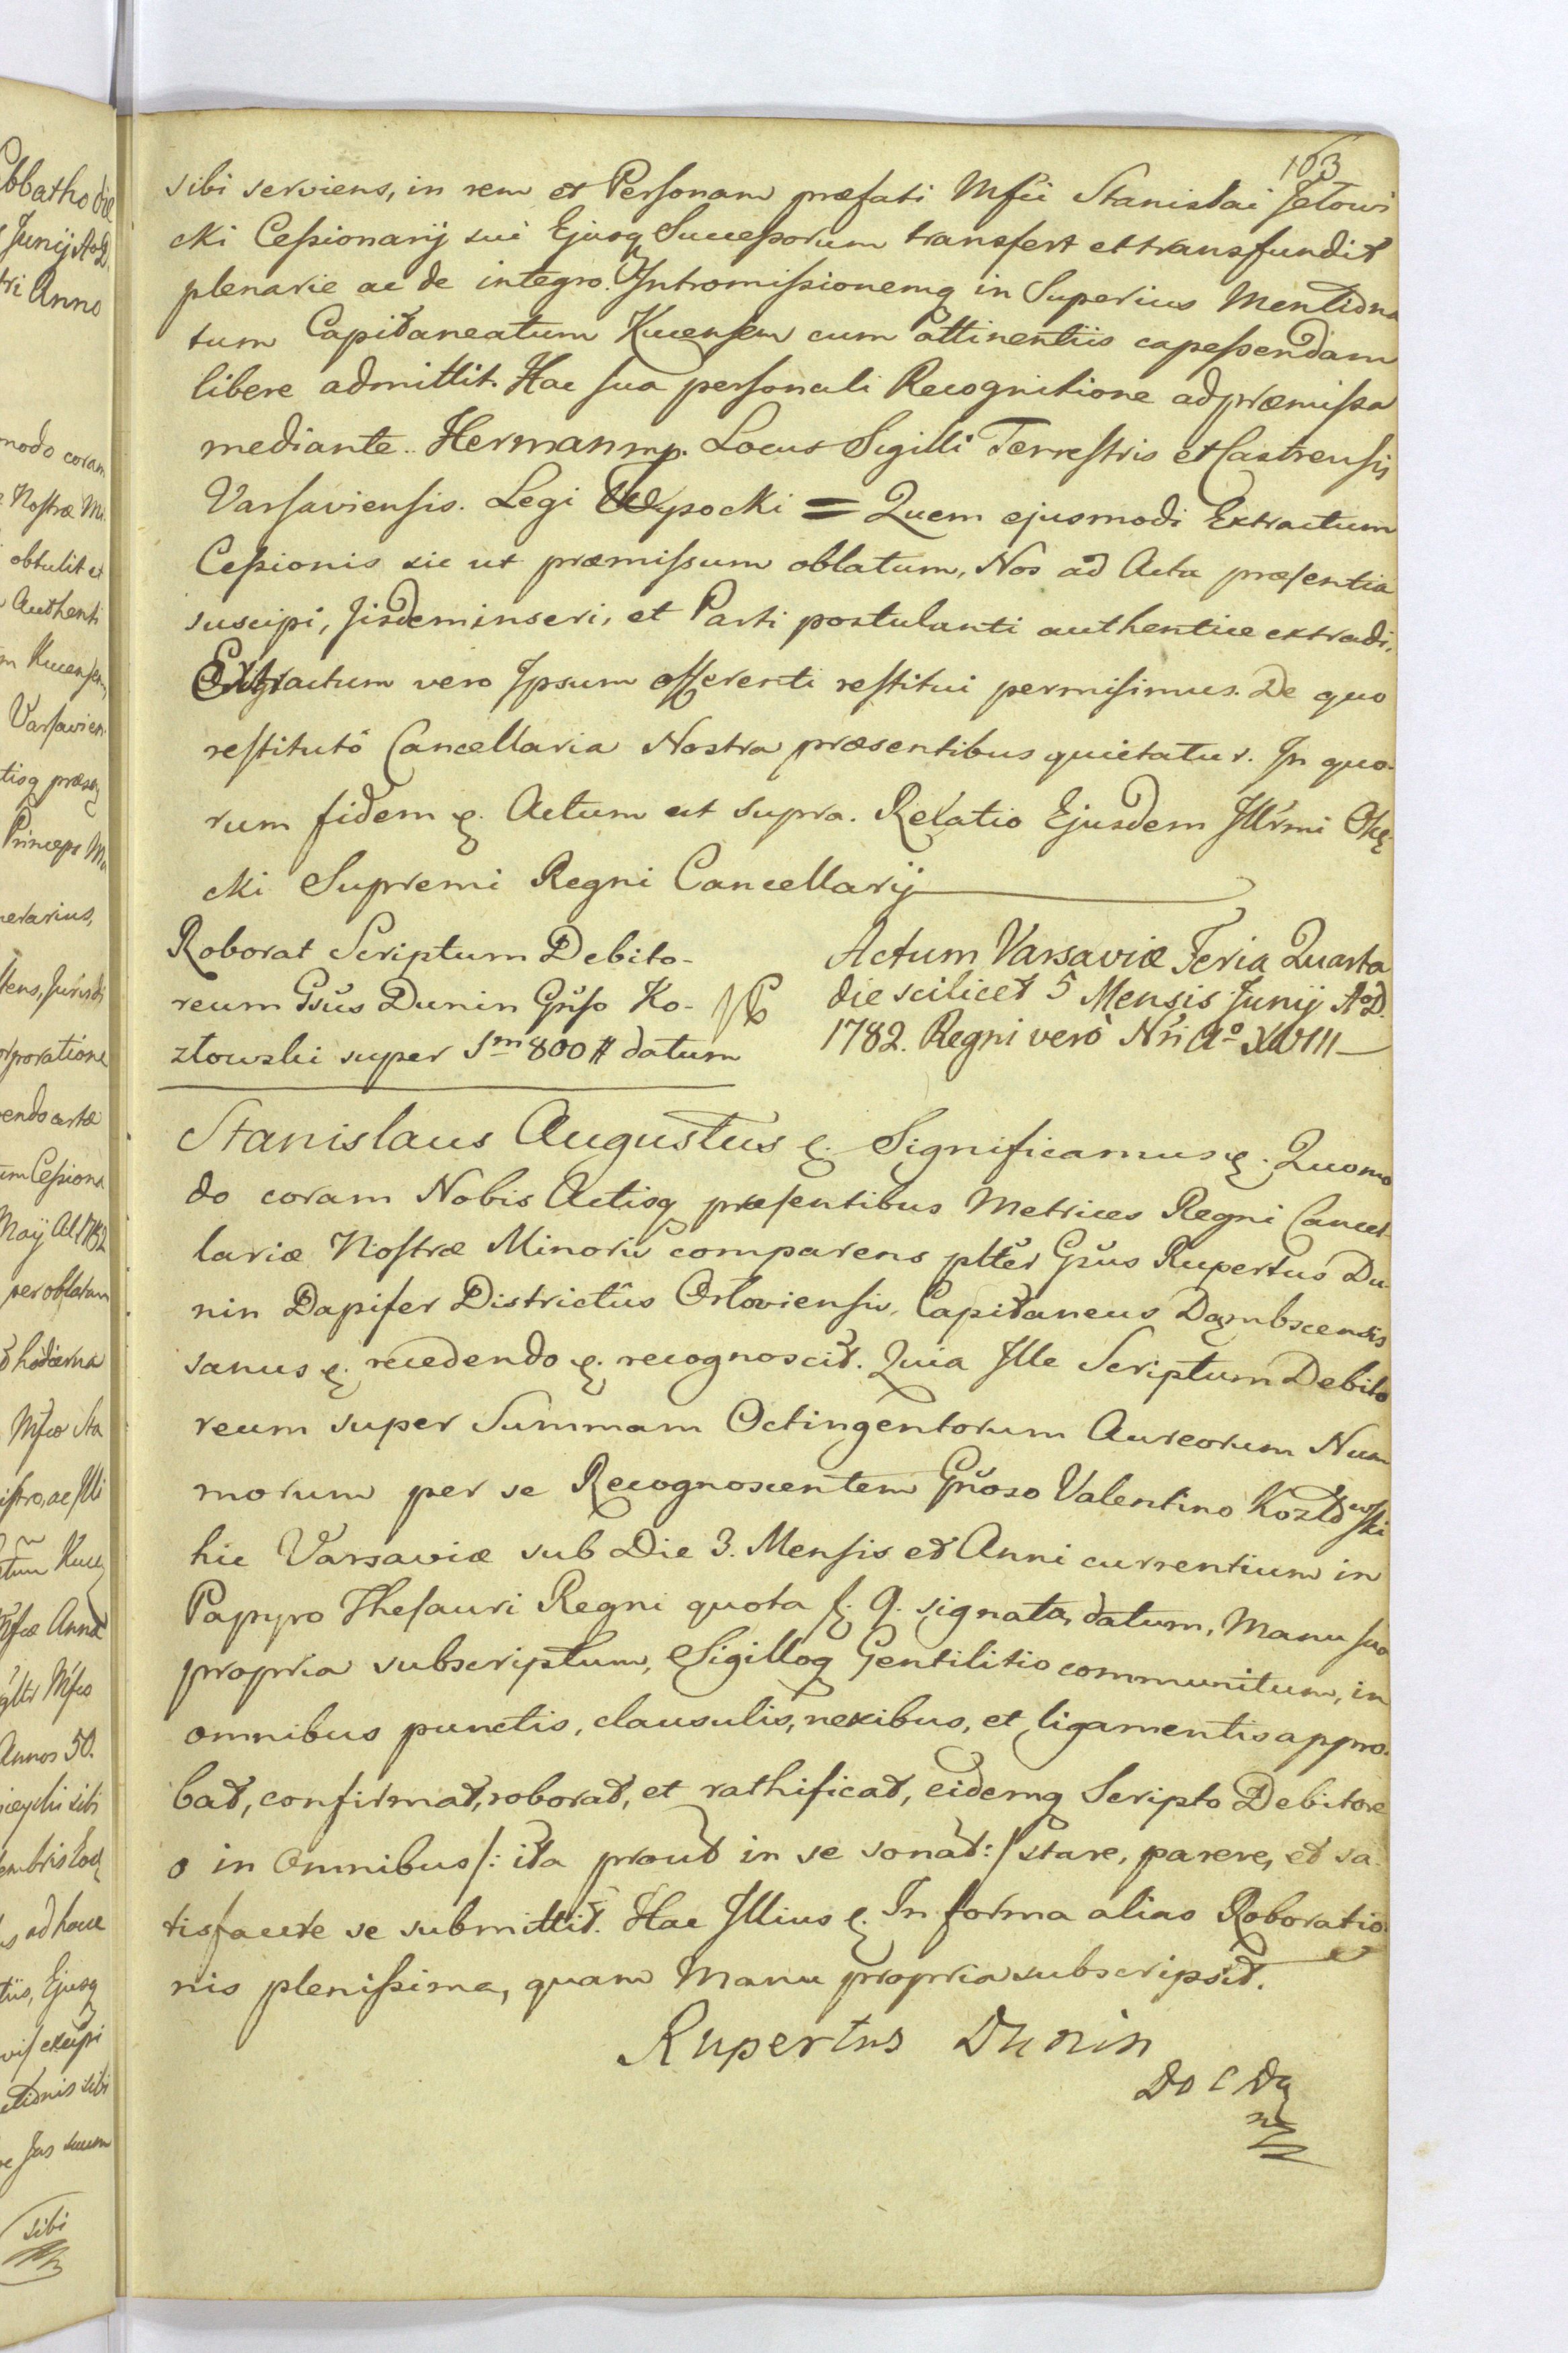 103
sibi serviens, in rem et Personam præfati Mfci Stanislai Jełowi
cki Cessionarij sui Ejusq Successorum transfert et transfundit
plenarie ac de integro. Intromissionemq in Superius Mentiona
tum Capitaneatum Kucensem cum attinentiis capessendam
libere admittit. Hac sua personali Recognitione ad præmissa
mediante. Herman mp. Locus Sigilli Terrestris et Castrensis
Varsaviensis. Legi Wypocki = Quem ejusmodi Extractum
Cessionis sic ut præmissum oblatum, Nos ad Acta præsentia
suscipi, Iisdem inseri, et Parti postulanti authentice extradi,
Extractum vero Ipsum offerenti restitui permisimus. De quo
restitutô Cancellaria Nostra præsentibus quietatur. In quo-
rum fidem &. Actum ut supra. Relatio Ejusdem Illrmi Okę
cki Supremi Regni Cancellarij
Roborat Scriptum Debito-
reum Gsus Dunin Gnso Ko-
złowski super Sm 800 # datum
Actum Varsaviæ Feria Quarta
die scilicet 5 Mensis Junij AoD.
1782. Regni verò Nri Ao XVIII
Stanislaus Augustus &. Significamus &. Quomo
do coram Nobis Actisq præsentibus Metrices Regni Cancel
lariæ Nostræ Minoris comparens plter Gsus Rupertus Du
nin Dapifer Districtûs Orłoviensis, Capitaneus Dąmbscensis
sanus &. recedendo &. recognoscit. Quia Ille Scriptum Debito
reum super Summam Octingentorum Aureorum Num
morum per se Recognoscentem Gnoso Valentino Kozłowski
hic Varsaviæ sub Die 3. Mensis et Anni currentium in
Papyro Thesauri Regni quota f. 9. signata, datum, Manu sua
propria subscriptum, Sigilloq Gentilitio communitum, in
omnibus punctis, clausulis, nexibus, et ligamentis appro-
bat, confirmat, roborat, et rathificat, eidemq Scripto Debitore
o in Omnibus /: ita prout in se sonat :/ stare, parere, et sa
tisfacere se submittit. Hac Illius &. In forma alias Roboratio
nis plenissima, quam Manu propria subscripsit.
Rupertus Dunin
D O C Dą